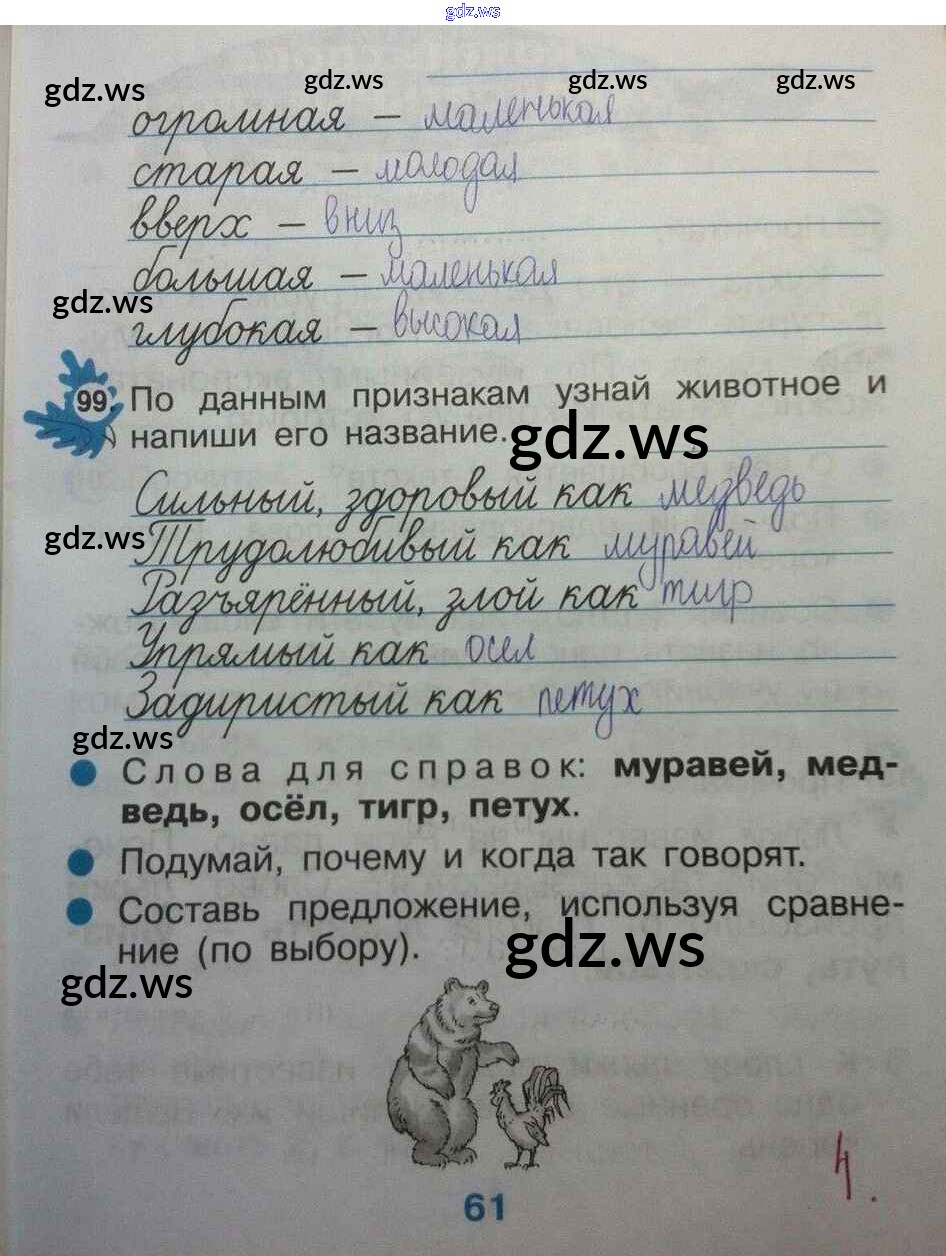 gdz.ws
gdz.ws gdz.ws gdz.ws gdz.ws
огромная – маленькая
старая – молодая
вверх – вниз
большая – маленькая
gdz.ws
глубокая – высокая
99. По данным признакам узнай животное и
напиши его название.
gdz.ws
Сильный, здоровый как медведь
gdz.ws
Трудолюбивый как муравей
Разъярённый, злой как тигр
Упрямый как осел
Задиристый как петух
gdz.ws
Слова для справок: муравей, мед-
ведь, осёл, тигр, петух.
Подумай, почему и когда так говорят.
Составь предложение, используя сравне-
ние (по выбору).
gdz.ws
gdz.ws
4.
61